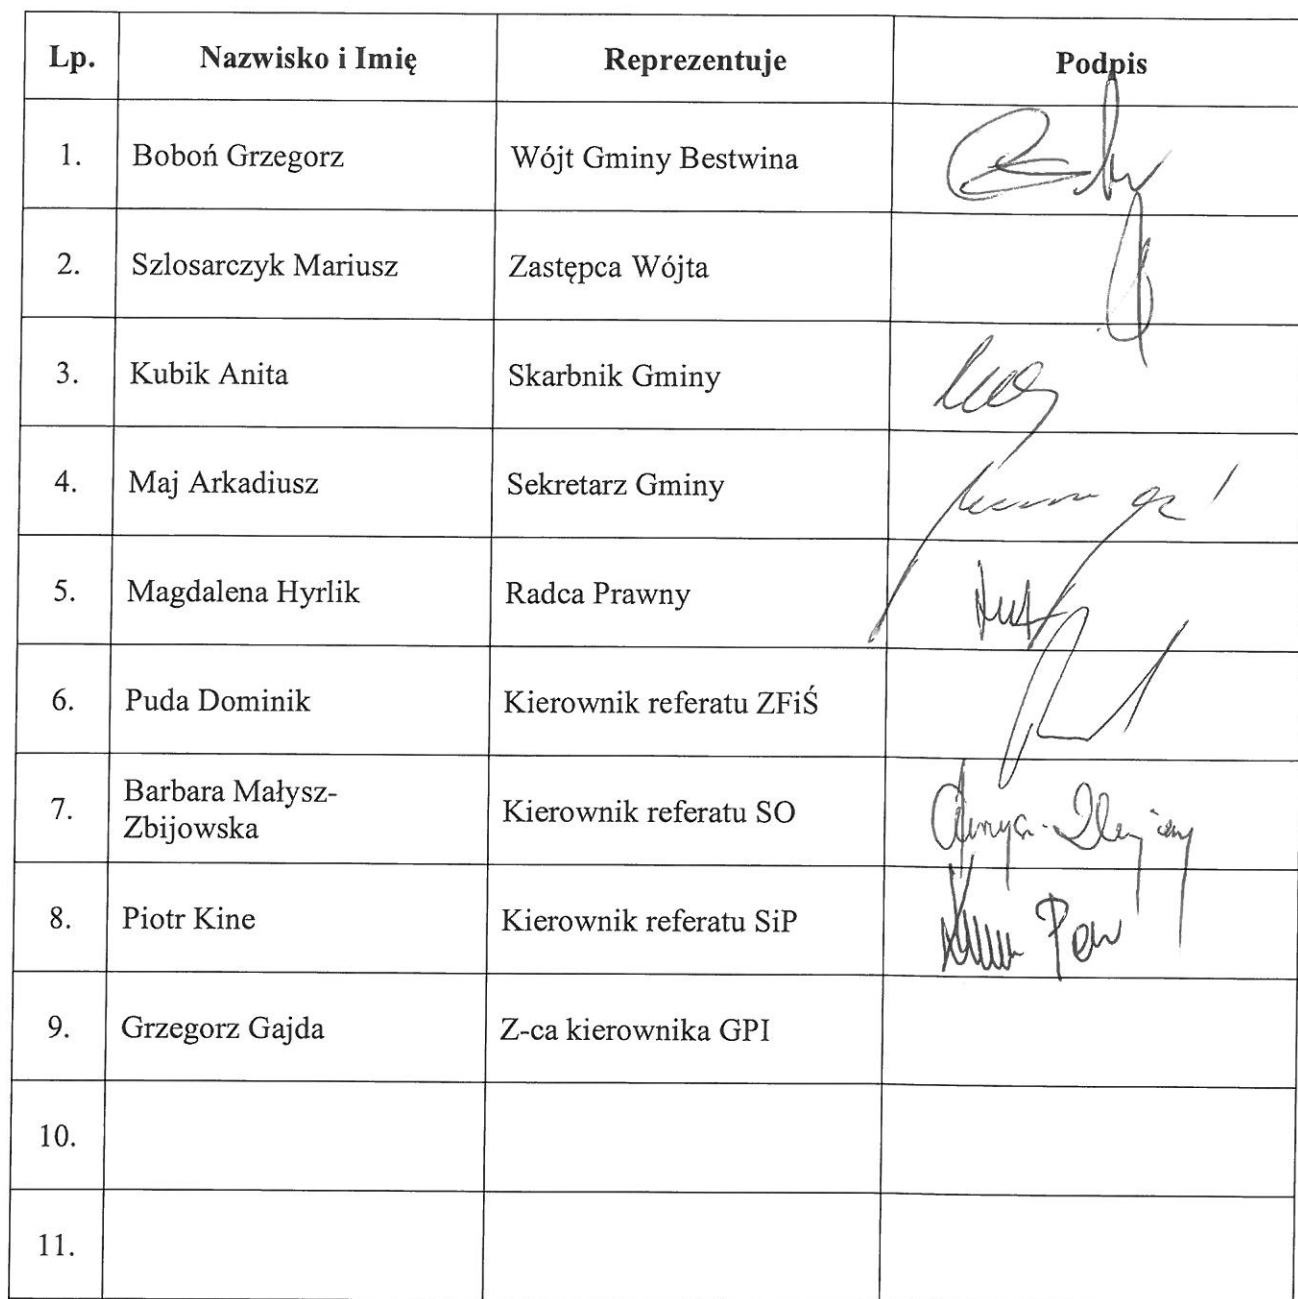 Lp. Nazwisko i Imię Reprezentuje Podpis
1. Boboń Grzegorz Wójt Gminy Bestwina
2. Szlosarczyk Mariusz Zastępca Wójta
3. Kubik Anita Skarbnik Gminy
4. Maj Arkadiusz Sekretarz Gminy
5. Magdalena Hyrlik Radca Prawny
6. Puda Dominik Kierownik referatu ZFiŚ
7. Barbara Małysz-
Zbijowska Kierownik referatu SO
8. Piotr Kine Kierownik referatu SiP
9. Grzegorz Gajda Z-ca kierownika GPI
10.
11.